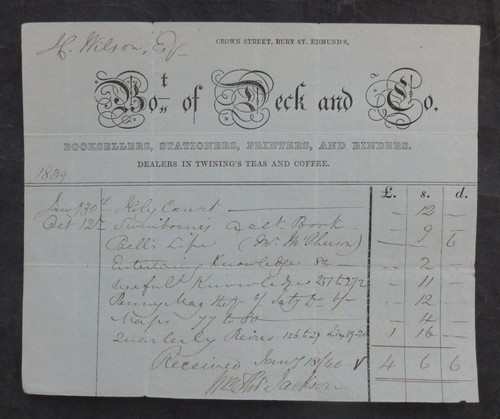 CROWN STREET, BURY ST. EDMUND'S,
H. Wilson, Esq
Bot of Deck and Co.
BOOKSELLERS, STATIONERS, PRINTERS, AND BINDERS.
DEALERS IN TWINING'S TEAS AND COFFEE.
1839
£. s. d.
Jany 30th Holy Court — 12 —
Oct 12th Swinborne's Book — 9 6
Bell's Life (Mr McPherson)
Entertaining Knowledge 84 — 2 —
Useful Knowledge 257 to 272 — 11 —
Penny Mag 6/- — 12 —
Maps 77 to 80 — 4 —
Quarterly Review 126 to 29 19-20 1 16 —
Received Jany 18/40 4 6 6
Jackson